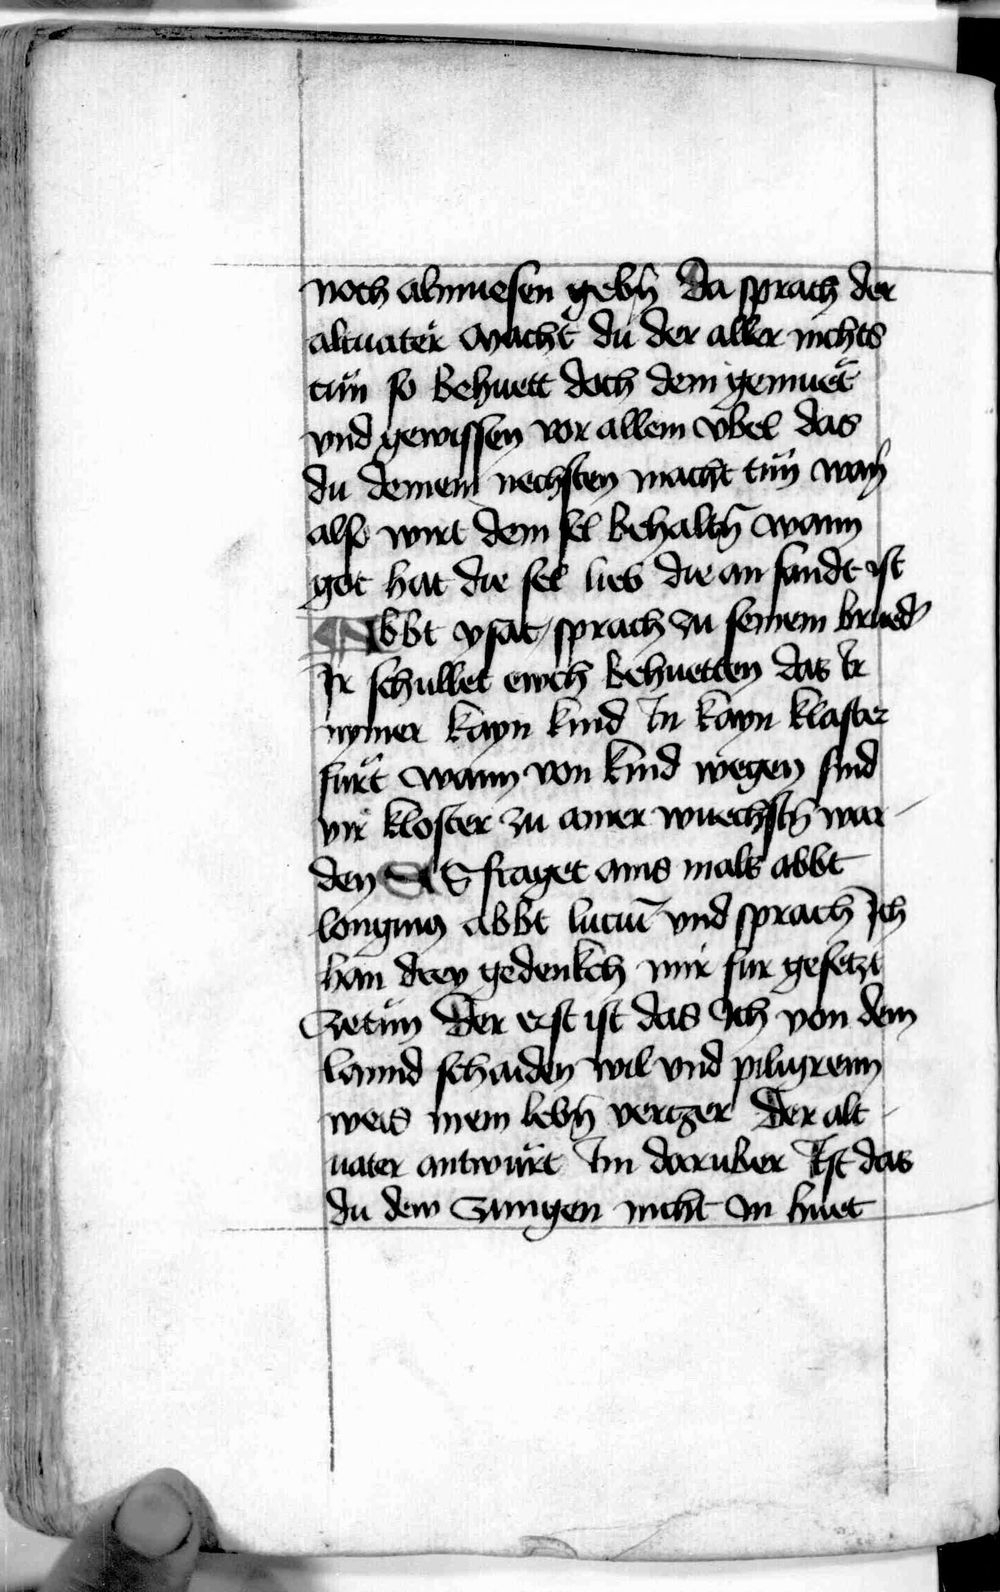 noch almuesen gebn̄ Da sprach der
altuater Macht du der aller nichts
tuͤn so behuett doch dein gemuet
vnd gewissen vor allem vͤbel das
du deinem nechsten macht tuͤn wan̄
also wirt dein sel behaltn̄ wann
got hat die sel lieb die an sundt ist
Abbt ysac sprach zu seinem brued̉
Ir schullet ewch behuetten das Ir
nymer kayn kind In kayn kloster
fuͤrt wann von kind wegen sind
vir kloster zu ainer wuechstn̄ wor
den Es fraget ains mals abbt
longinus abbt luciū vnd sprach Ich
han drey gedenkch mir fur gesetzt
Zetuͤn Der erst ist das Ich von dem
lannd schaiden wil vnd piligreim
weis mein lebn̄ verczer Der alt
uater antwuͤrt Im daruber Ist das
du dew Zungen nicht In huet